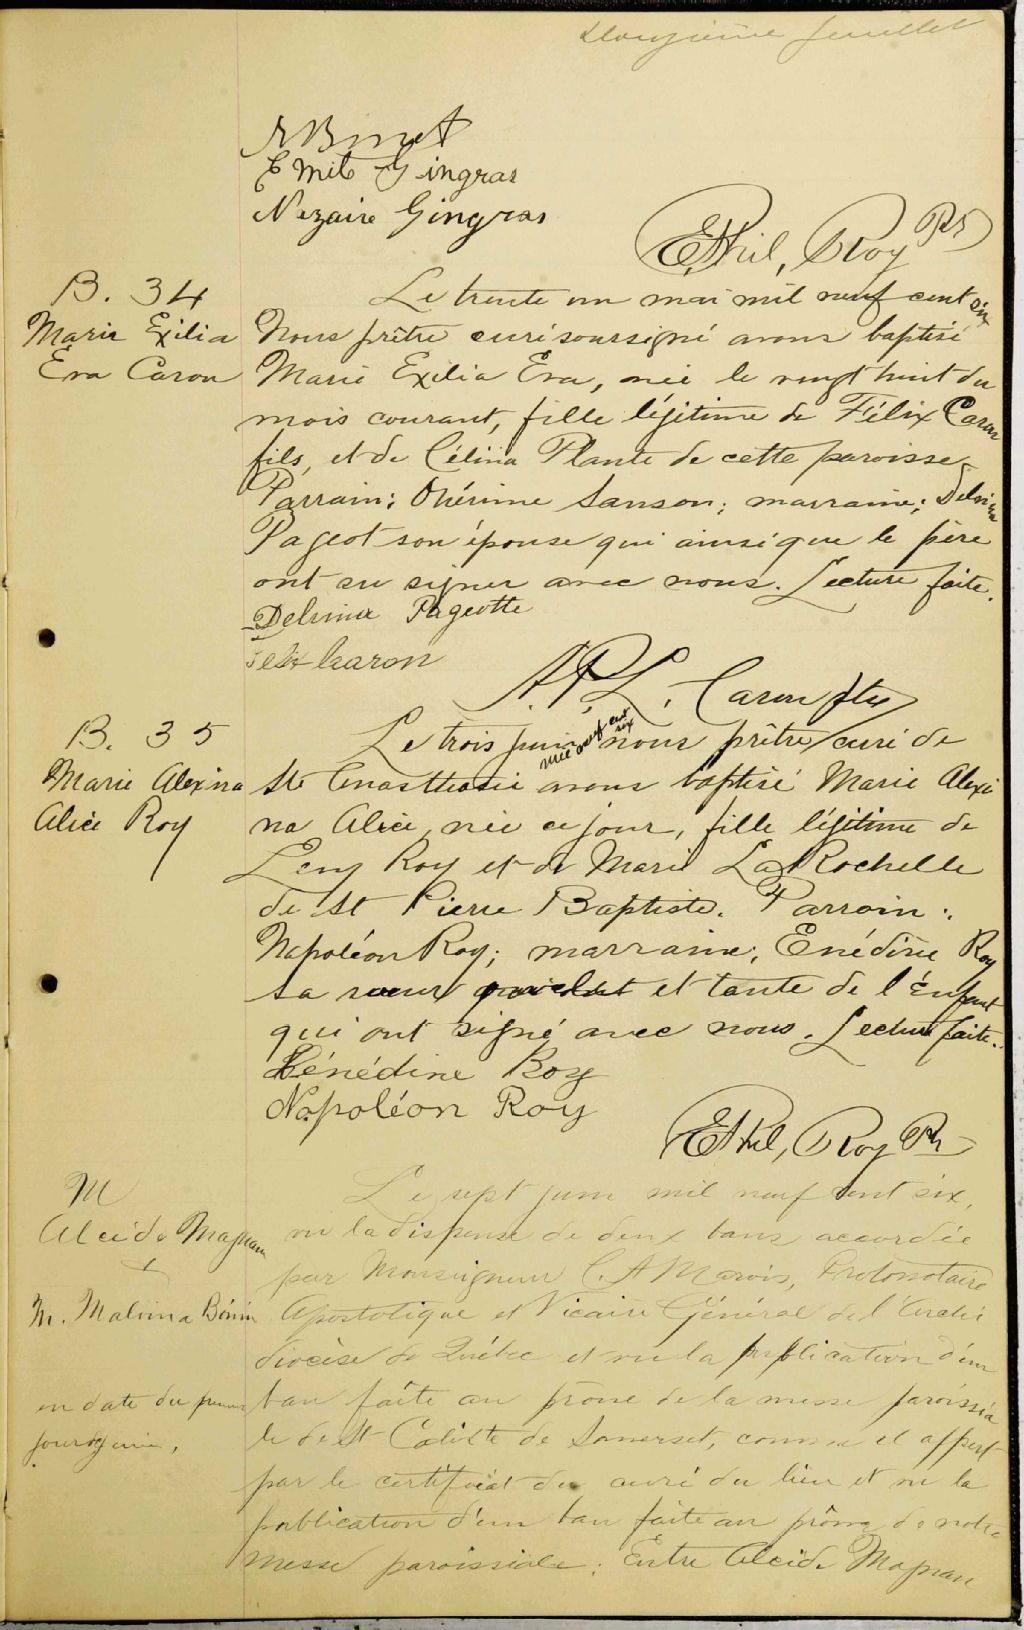 Douzième feuillet
Emile Gingras
Nezaire Gingras
Ethil, Roy Ptr
B. 34
Marie Exilia
Eva Caron
Le trente un mai mil neuf cent six
Nous prêtre curé soussigné avons baptisé
Marie Exilia Eva, née le vingt huit du
mois courant, fille légitime de Félix Caron
fils, et de Célina Plante de cette paroisse.
Parrain: Onérime Sanson; marraine; Delvina
Pageot son épouse qui ainsi que le père
ont su signer avec nous. Lecture faite.
Delvina Pageotte
Felix Caron
A.P.L. Caron ptre
B. 35
Marie Alexina
Alice Roy
Le trois juin mil neuf cent six nous prêtre curé de
Ste Anasthasie avons baptisé Marie Alexi
na Alice, née ce jour, fille légitime de
Roy et de Marie LaRochelle
de St Pierre Baptiste. Parrain:
Napoléon Roy; marraine; Enédine Roy
sa soeur et tante de l'Enfant
qui ont signé avec nous. Lecture faite.
Bénédine Roy
Napoléon Roy
Ethil, Roy Ptr
M
Alcide Magnan
&
M. Malvina Bérin
en date du premier
jour de juin,
Le sept juin mil neuf cent six,
vu la dispense de deux bans accordée
par Monseigneur C. A Marois, Protonotaire
Apostolique et Vicaire Général de l'Archi
diocèse de Québec et vu la publication d'un
ban faîte au prône de la messe paroissia
le de St Calixte de Somerset, comme il appert
par le certificat du curé du lieu et vu la
publication d'un ban faite au prône de notre
messe paroissiale: Entre Alcide Magnan